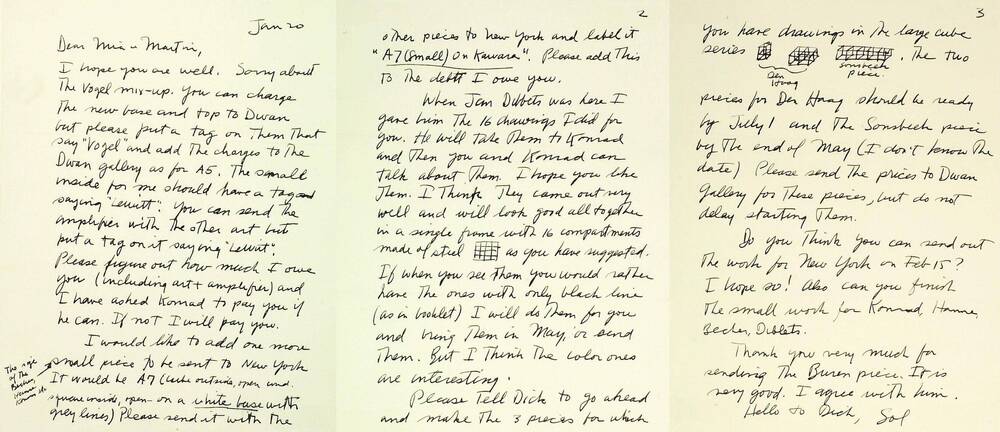 Jan 20
Dear Mia + Martin,
I hope you are well. Sorry about
The Vogel mix-up. You can charge
The new base and top to Dwan
but please put a tag on Them That
say "Vogel" and add The charges to The
Dwan gallery as for A5. The small
inside for me should have a tag
saying "Lewitt". You can send the
amplifier with the other art but
put a tag on it saying "Lewitt".
Please figure out how much I owe
you (including art + amplifier) and
I have asked Konrad to pay you if
he can. If not I will pay you.
I would like to add one more
small piece to be sent to New York
It would be A7 (cube outside, open end.
square inside, open - on a white base with
grey lines) Please send it with the
The size
of The
Becher,
2
other pieces to New York and label it
"A7 (Small) On Kawara". Please add This
To The debt I owe you.
When Jan Dibbets was here I
gave him The 16 drawings I did for
you. He will take Them to Konrad
and Then you and Konrad can
talk about Them. I hope you like
Them. I Think They came out very
well and will look good all together
in a single frame with 16 compartments
made of steel as you have suggested.
If when you see them you would rather
have The ones with only black line
(as in booklet) I will do Them for you
and bring Them in May, or send
Them. But I Think The color ones
are interesting.
Please tell Dick to go ahead
and make The 3 pieces for which
3
you have drawings in The large cube
series . The two
Den
Haag
Sonsbeek
piece.
pieces for Den Haag should be ready
by July 1 and The Sonsbeek piece
by The end of May (I don't know The
date) Please send The prices to Dwan
Gallery for These pieces, but do not
delay starting Them.
Do you Think you can send out
The work for New York on Feb 15?
I hope so! Also can you finish
The small work for Konrad, Hanne,
Becher, Dibbets.
Thank you very much for
sending The Buren piece. It is
very good. I agree with him.
Hello to Dick, Sol